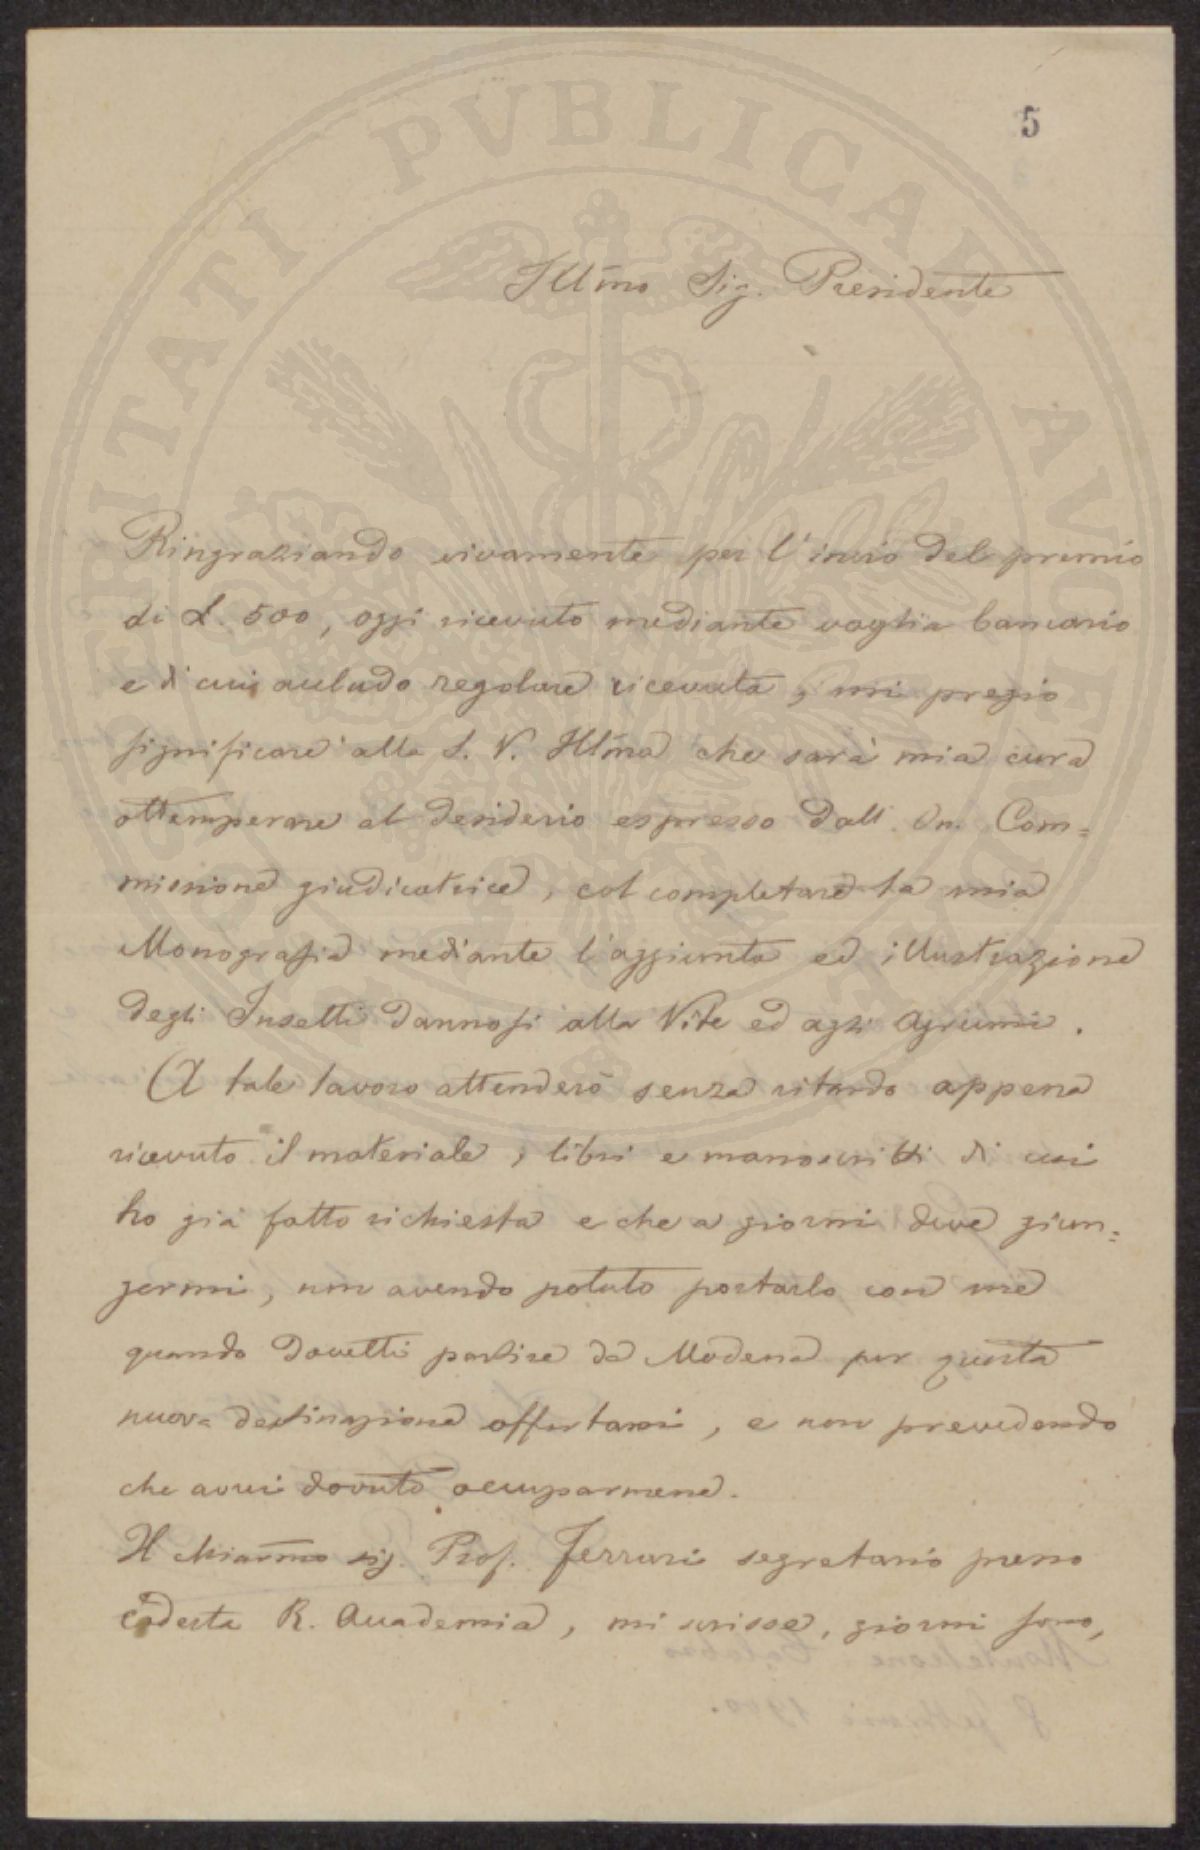 5
Illmo Sig. Presidente
Ringraziando vivamente per l'invio del premio
di L. 500, oggi ricevuto mediante vaglia bancario
e di cui accludo regolare ricevuta, mi pregio
significare alla S. V. Illma che sarà mia cura
ottemperare al desiderio espresso dall'On. Com=
missione giudicatrice, col completare la mia
Monografia mediante l'aggiunta ed illustrazione
degli Insetti dannosi alla Vite ed agli Agrumi.
A tale lavoro attenderò senza ritardo appena
ricevuto il materiale, libri e manoscritti di cui
ho già fatto richiesta e che a giorni deve giun=
germi, non avendo potuto portarlo con me
quando dovetti partire da Modena per questa
nuova destinazione offertami, e non prevedendo
che avrei dovuto occuparmene.
Il chiarmo sig. Prof. Ferrari segretario presso
codesta R. Accademia, mi scrisse, giorni sono,
PVBLICAE